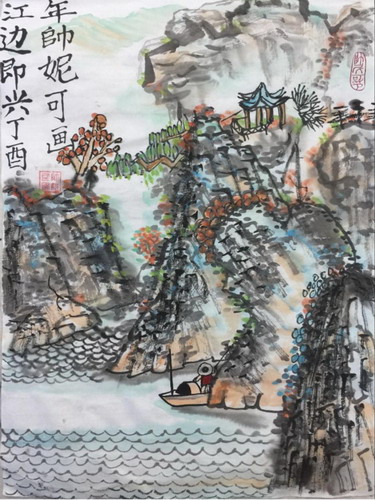 江边即兴丁酉
年帥妮可画